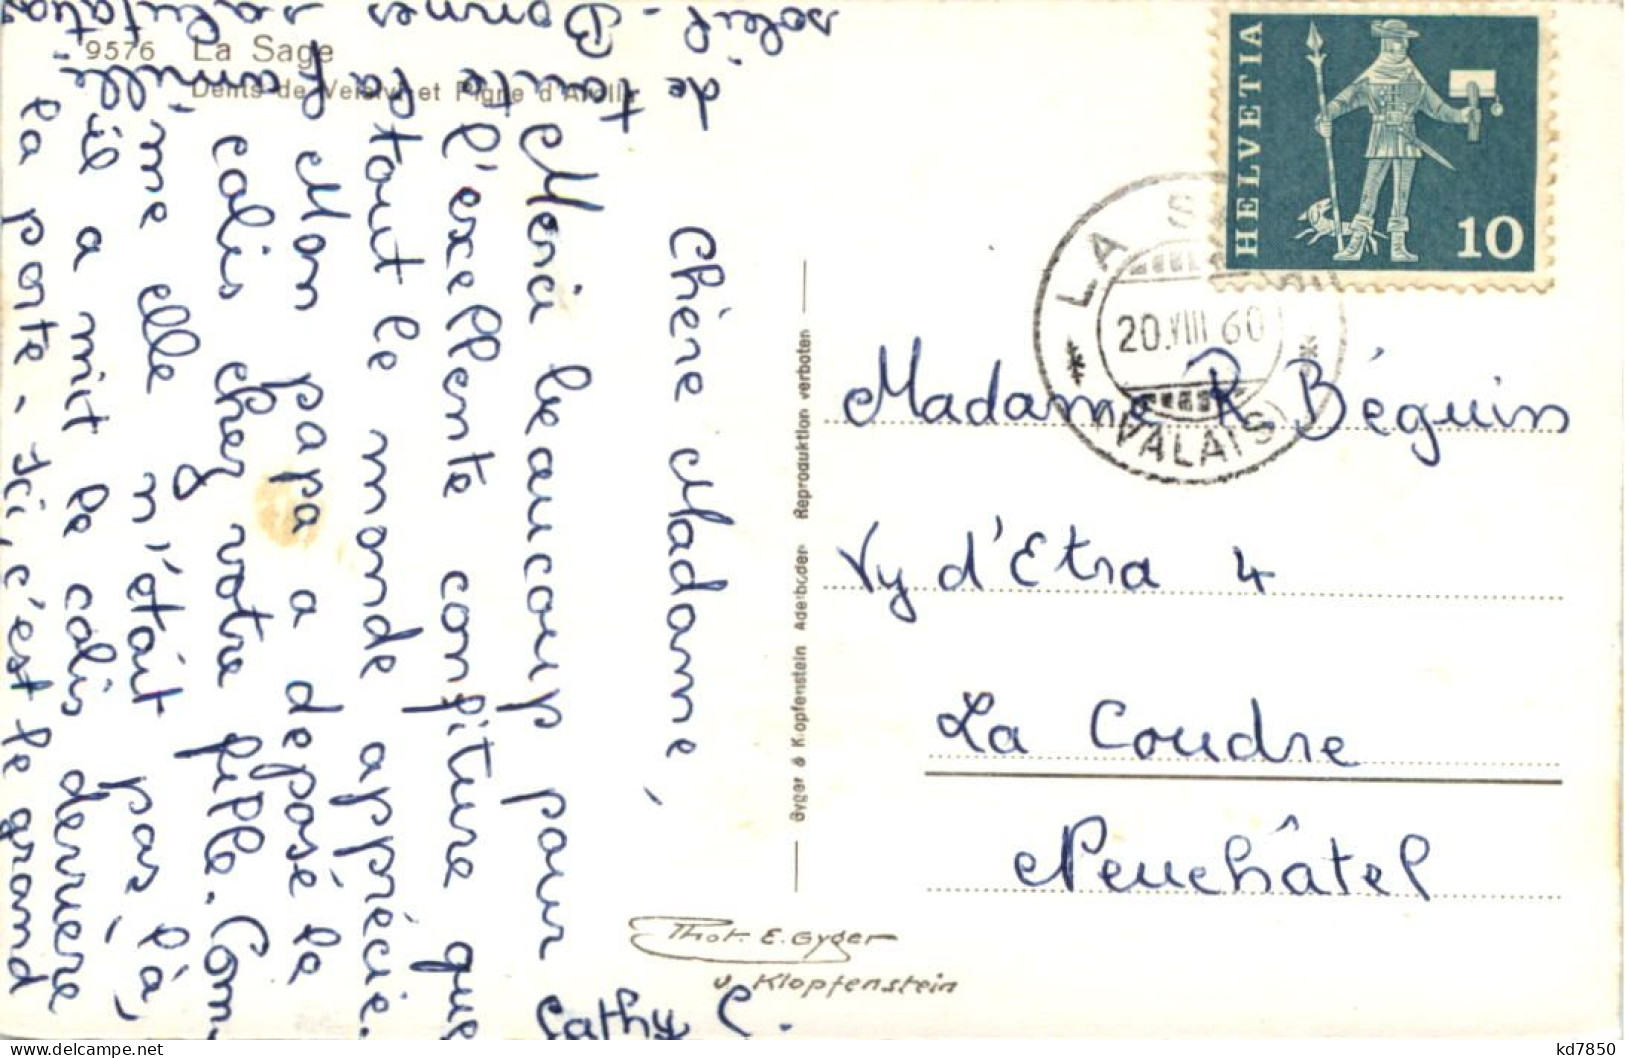 9576 La Sage
Dents de Veisivi et Pigne d'Arolla
Chère Madame,
Merci beaucoup pour
l'excellente confiture que
tout le monde apprécie.
Mon papa a déposé le
calis chez votre fille. Com-
me elle n'était pas là,
il a mit le calis derrière
la porte. Ici, c'est le grand
soleil. Bonnes salutations
de toute la famille
Cathy C.
Gyger & Klopfenstein Adelboden Reproduktion verboten
Phot. E. Gyger
u Klopfenstein
HELVETIA
10
LA SAGE
20.VIII 60
(VALAIS)
Madame R. Béguin
Vy d'Etra 4
La Coudre
Neuchâtel
kd7850